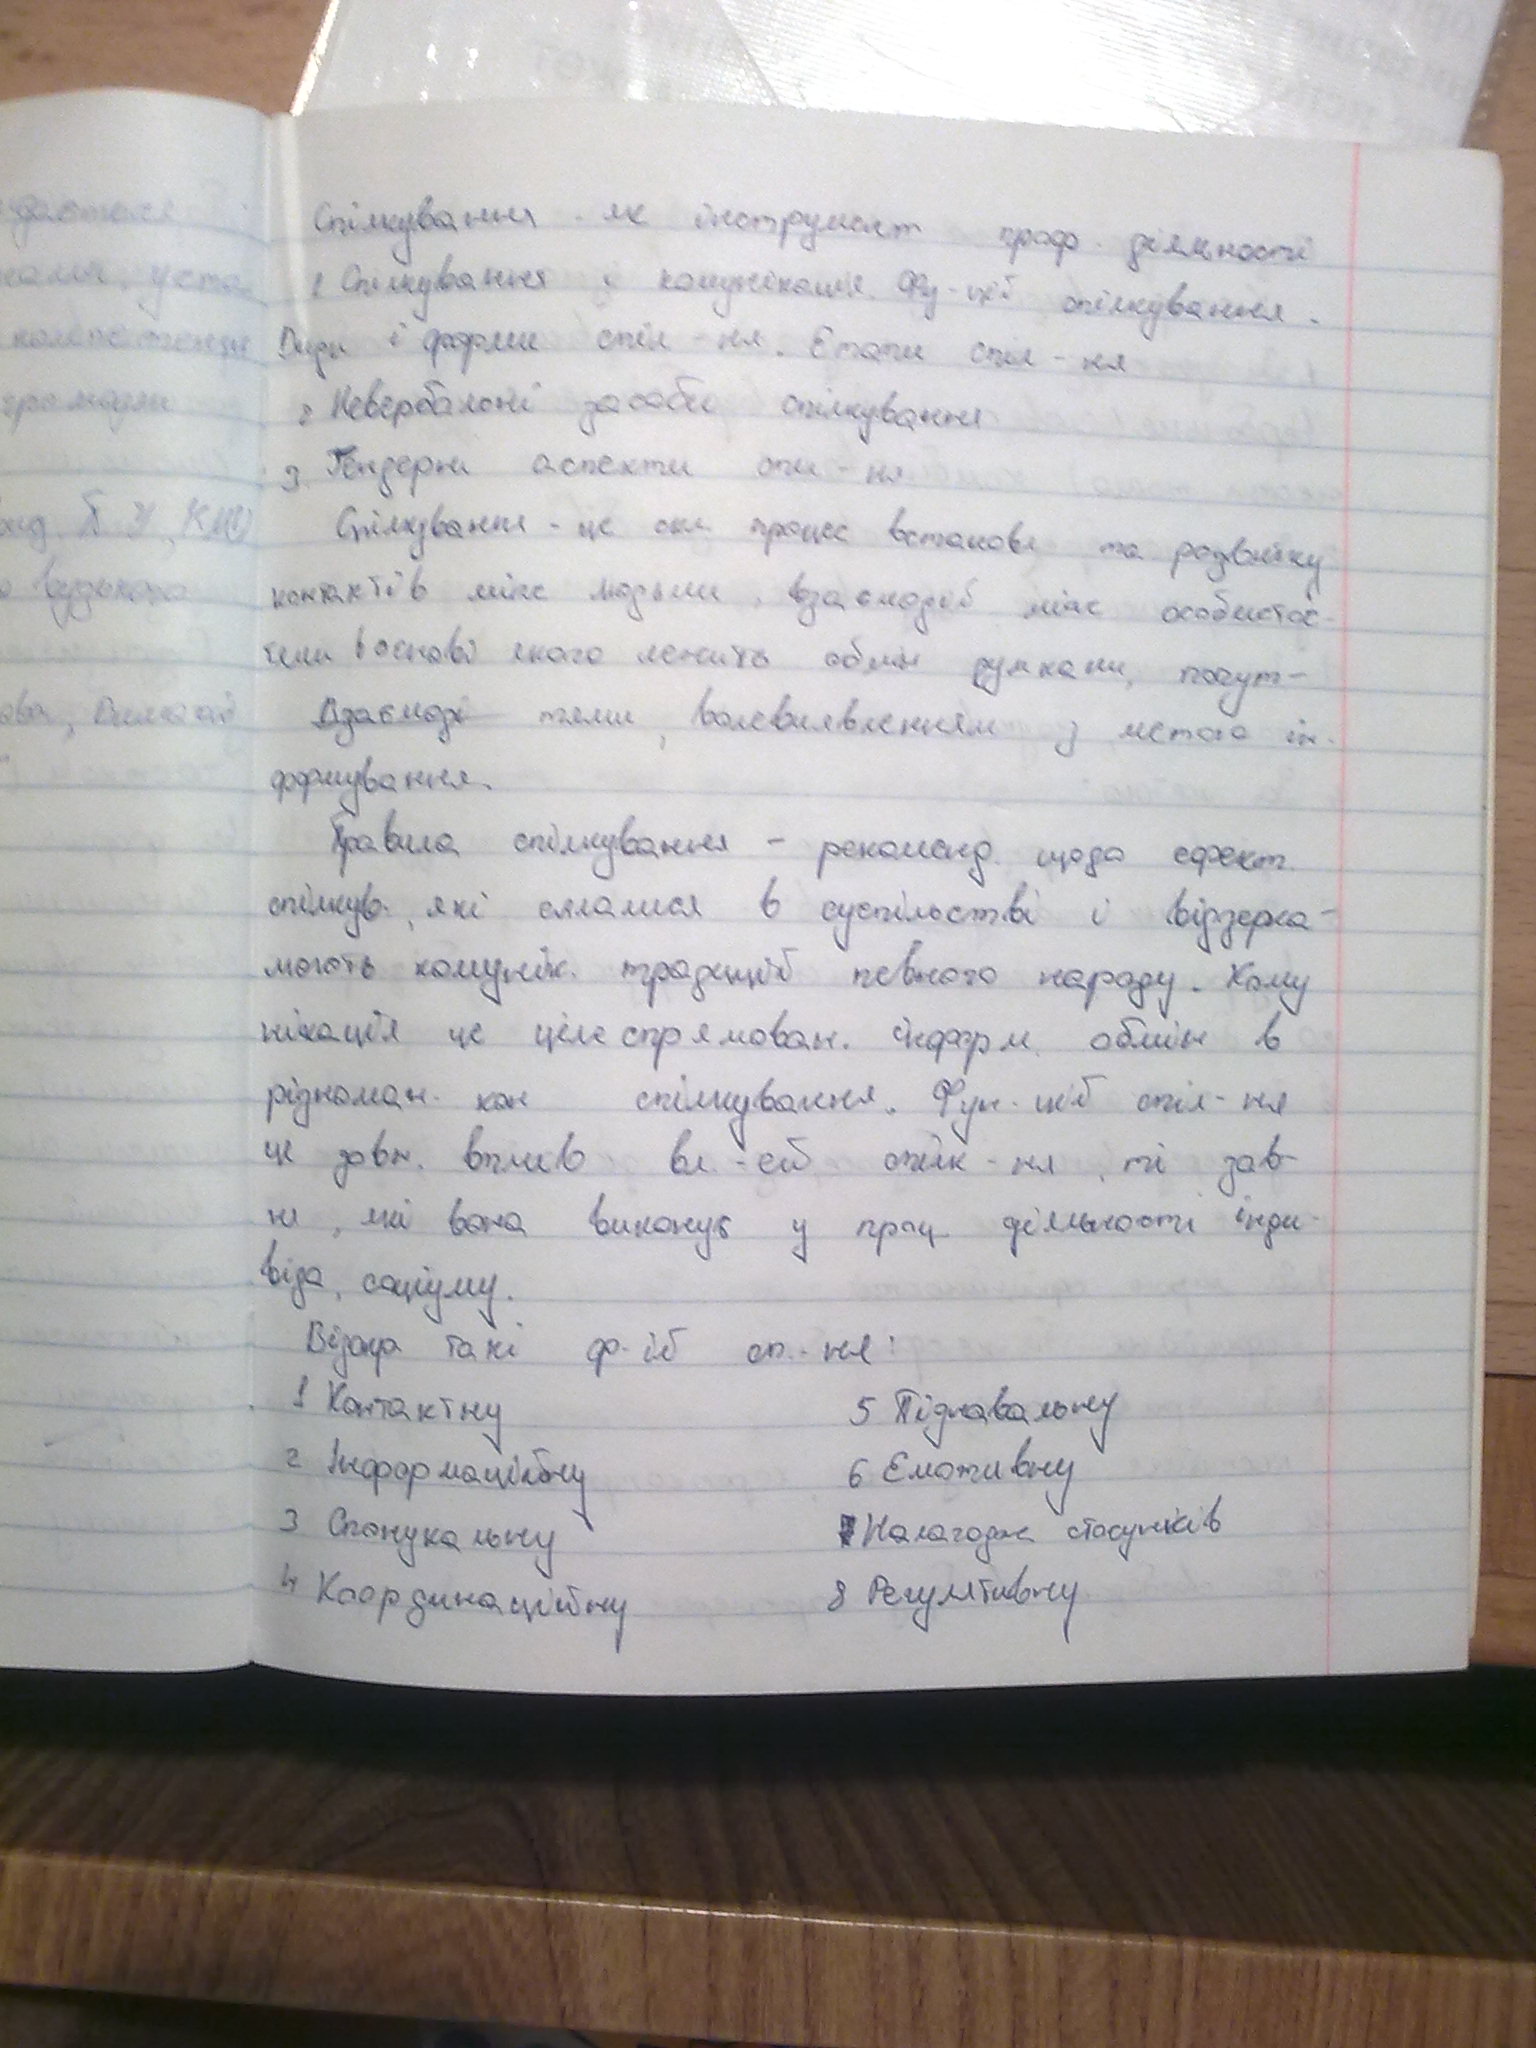 Спілкування як інструмент проф. діяльності
1 Спілкування і комунікація. Фу-ції спілкування.
Види і форми спіл-ня. Етапи спіл-ня
2 Невербальні засоби спілкування
3. Гендерні аспекти спіл-ня
Спілкування - це скл. процес встановл та розвитку
контактів між людьми, взаємодії між особистос-
тями в основі якого лежить обмін думками, почут-
Взаємоді тями, волевиявленням з метою ін-
формування.
Правила спілкування - рекоменд. щодо ефект.
спілкув., які склалися в суспільстві і відзерка-
люють комунік. традиції певного народу. Кому
нікація це цілеспрямован. інформ. обмін в
різноман. кон спілкування. Фун-ції спіл-ня
це зовн. вплив вл-ей спілк-ня, ті зав-
ня, які вона виконує у проц діяльності інди-
віда, соціуму.
Відокр такі ф-ії сп.-ня:
1 Контактну 5 Пізнавальну
2 Інформаційну 6 Емотивну
3 Спонукальну 7 Налагодж стосунків
4 Координаційну 8 Регулятивну